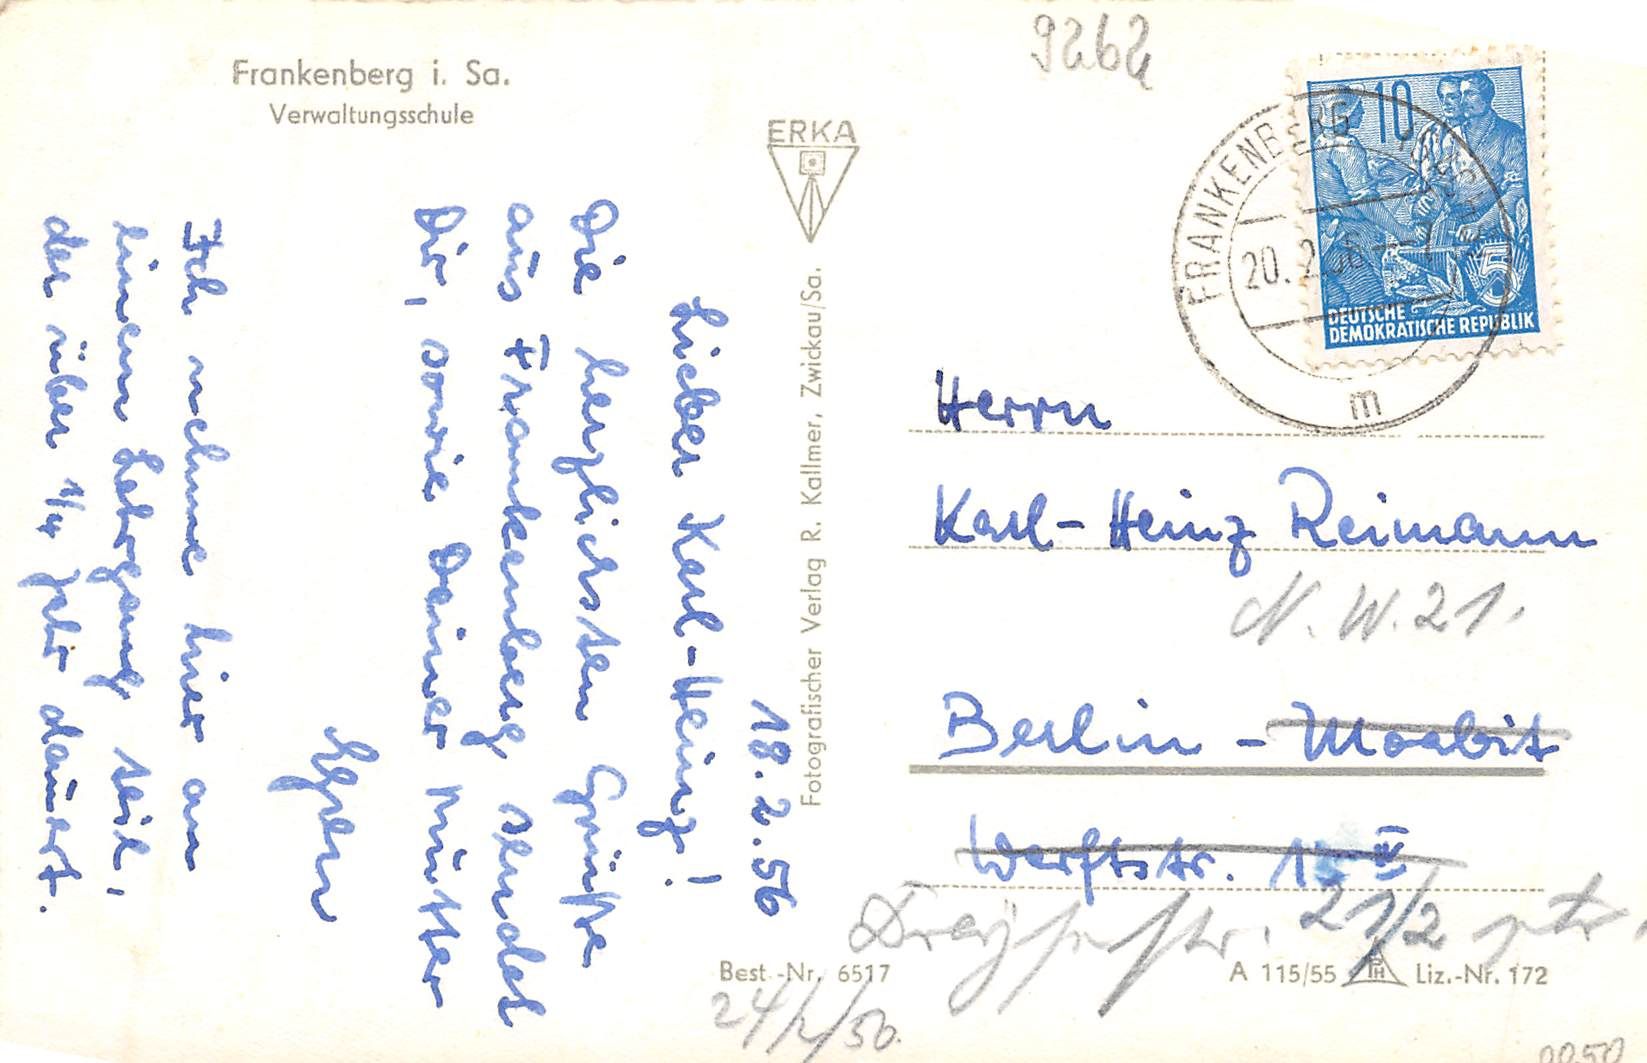 Frankenberg i. Sa.
Verwaltungsschule
ERKA
Fotografischer Verlag R. Kallmer, Zwickau/Sa.
Best.-Nr. 6517
A 115/55
Liz.-Nr. 172
18.2.56
Lieber Karl-Heinz!
Die herzlichsten Grüße
aus Frankenberg sendet
Dir, sowie Deiner Mutter
Ich nehme hier an
einem Lehrgang teil,
der über 1/4 Jahr dauert.
9262
10
FRANKENBERG
20.2.56
m
5
DEUTSCHE
DEMOKRATISCHE REPUBLIK
Herrn
Karl-Heinz Reimann
N.W.21.
Berlin - Moabit
Werftstr.
21/2 ptr.
24/2/56.